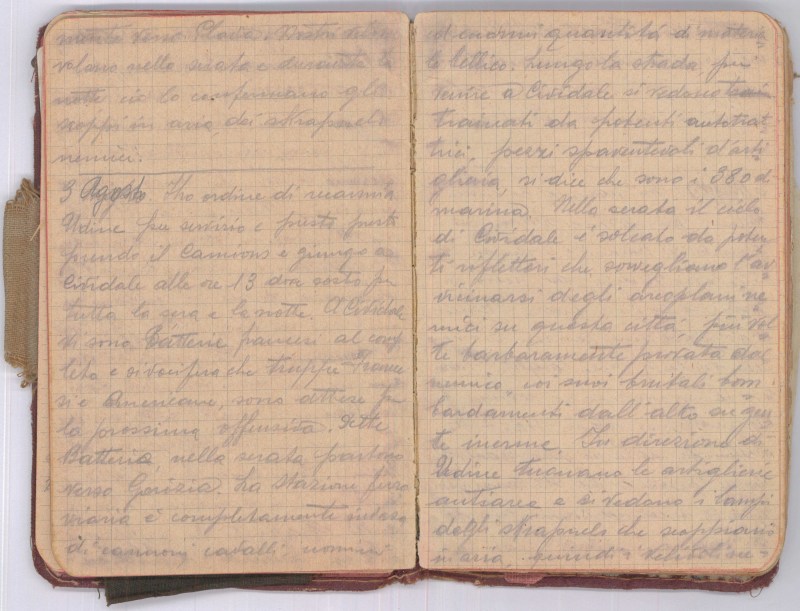 mente verso Plava. Nostri veli
volano nella serata e durante la
notte ciò lo confermano gli
scoppi in aria, dei shrapnels
nemici.
3 Agosto. Ho ordine di recarmi a
Udine per servizio e presto presto
prendo il Camions e giungo a
Cividale alle ore 13 dove sosto per
tutta la sera e la notte. A Cividale
vi sono Batterie francesi al com
pleto e si vocifera che truppe France
si e Americane, sono attese per
la prossima offensiva. Dette
Batterie, nella serata partono
verso Gorizia. La stazione ferro
viaria è completamente
di cannoni cavalli uomini
ed enormi quantità di materia
le bellico. Lungo la strada, per
venire a Cividale si vedono
trainati da potenti autotrat
trici, pezzi spaventevoli d'arti
glieria, si dice che sono i 380 di
marina. Nella serata il cielo
di Cividale è solcato da poten
ti riflettori che sorvegliano l'av
vicinarsi degli areoplani ne
mici su questa città, più vol
te barbaramente provata dal
nemico, coi suoi brutali bom
bardamenti dall'alto su gen
te inerme. In direzione di
Udine tuonano le artiglierie
antiaree e si vedono i lampi
degli shrapnels che scoppiano
in aria, quindi i velivoli ne=